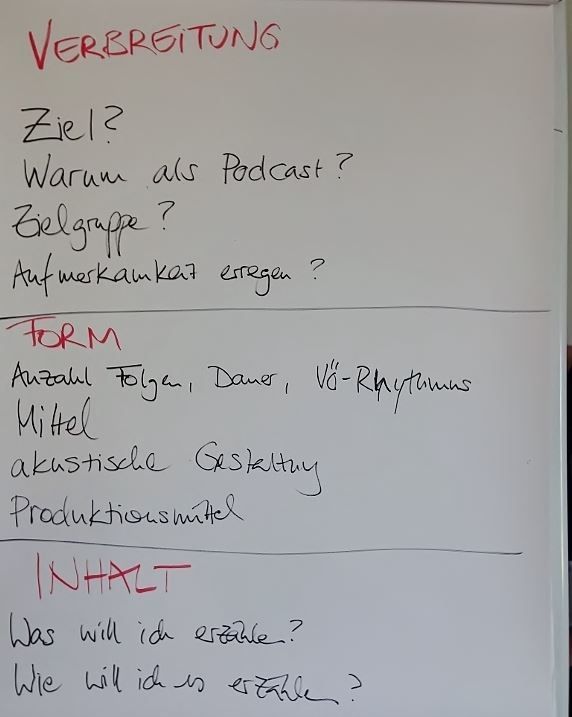 VERBREITUNG
Ziel?
Warum als Podcast?
Zielgruppe?
Aufmerkamkeit erregen?
FORM
Anzahl Folgen, Dauer, VÖ-Rhythmus
Mittel
akustische Gestaltung
Produktionsmittel
INHALT
Was will ich erzählen?
Wie will ich es erzählen?